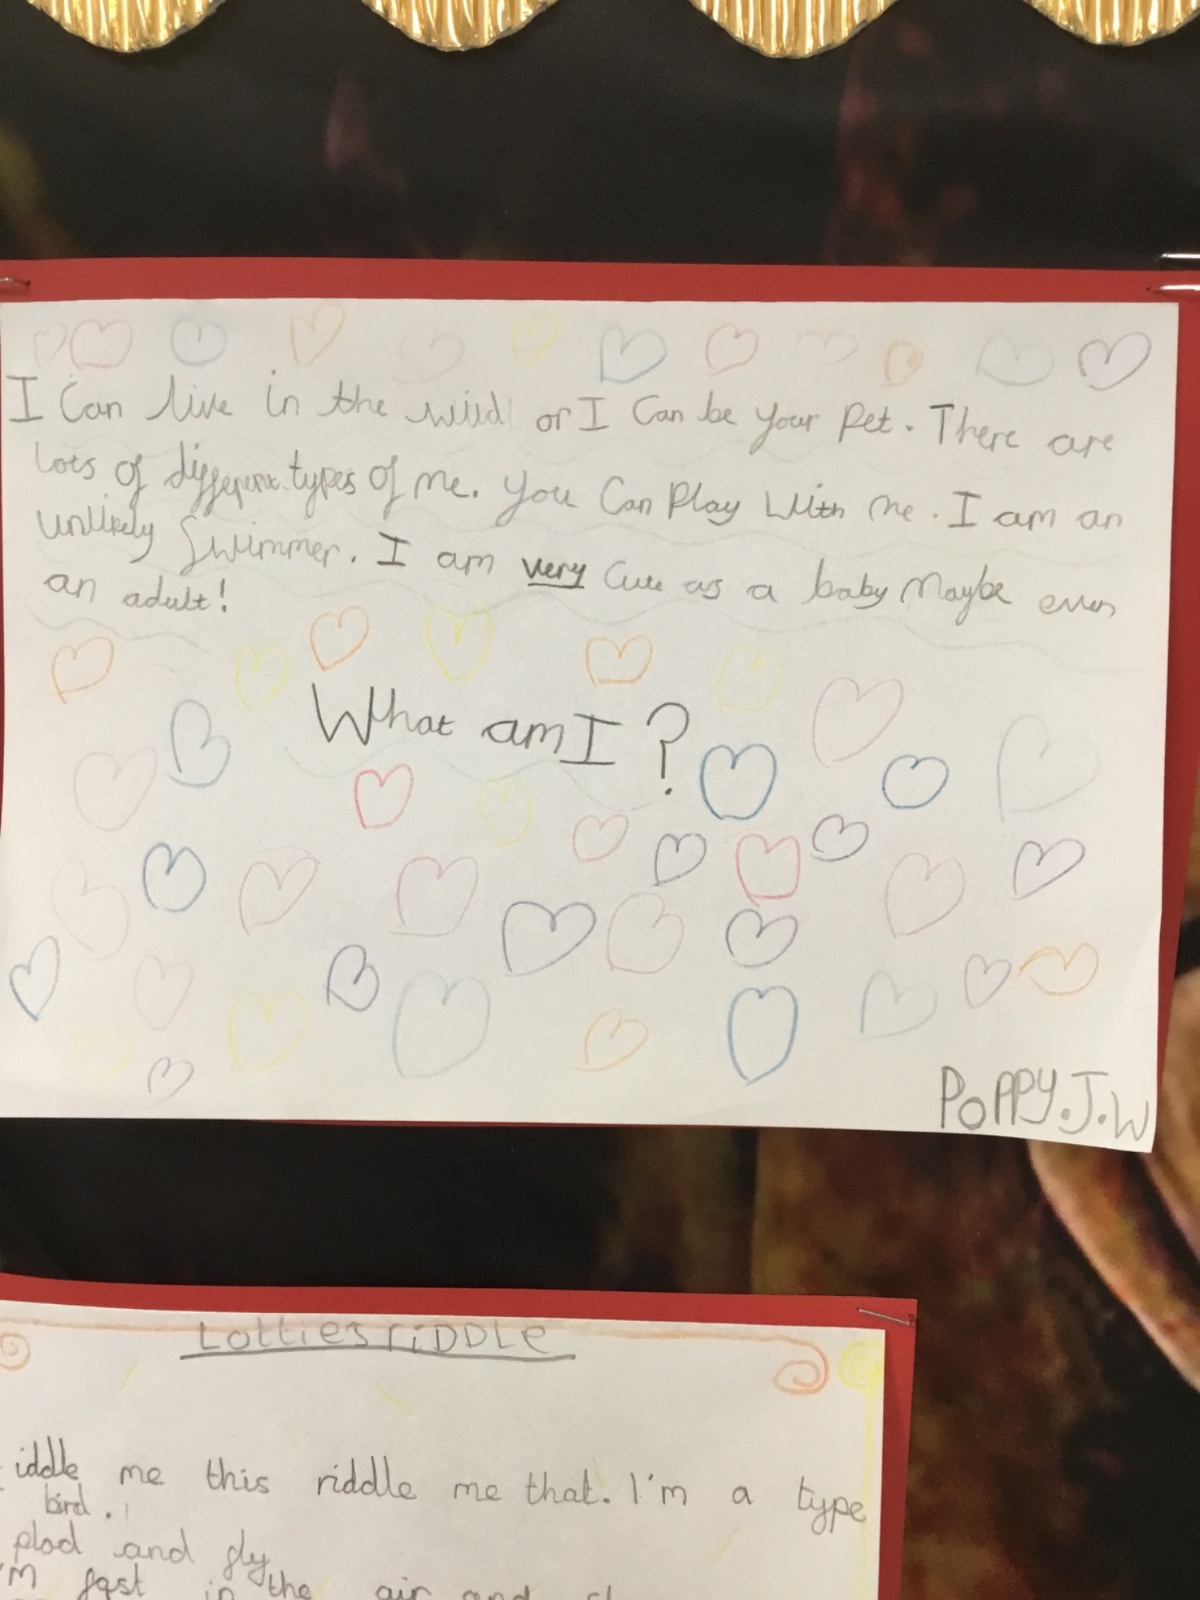 I Can live in the wild or I Can be your Pet. There are
lots of different types of me. you Can Play with me. I am an
unlikely Swimmer. I am very Cute as a baby Maybe even
an adult!
What am I?
POPPY.J.W
Lotties riDDLe
iddle me this riddle me that. I'm a type
bird.
plod and fly
'm fast in the air and